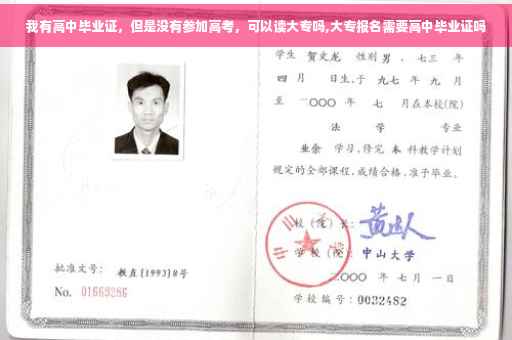 我有高中毕业证，但是没有参加高考，可以读大专吗,大专报名需要高中毕业证吗
学生 贺文龙 性别 男 、七三 年
四 月 日生,于 九七 年 九 月
至 二〇〇〇 年 七 月在本校(院)
法 学 专业
业余 学习,修完 本 科教学计划
规定的全部课程,成绩合格,准予毕业。
校 (院) 长:
学 校 (院): 中山大学
二〇〇〇 年 七 月 一 日
批准文号: 教直[1993]8号
No. 01669286
学校编号: 0032482